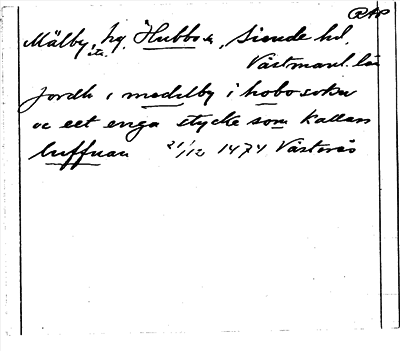 RAP
Mälby, hg. Hubbo sn, Siende hd,
ita.
Västmanl. län
Jordh i medelby i hobo sokn
oc eet enga stycke som kallas
luffnan 21/12 1474 Västerås